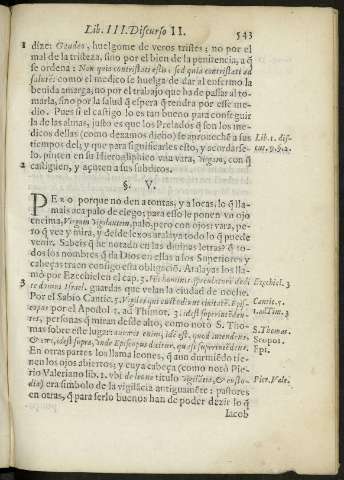 Lib. III. Discurso II. 543
1 dize: Gaudeo, huelgome de veros tristes: no por el
mal de la tristeza, sino por el bien de la penitencia, a q̃
se ordena: Non quia contristati estis: sed quia contristati ad
salutẽ: como el medico se huelga de dar al enfermo la
bevida amarga, no por el trabajo que ha de passar al to-
marla, sino por la salud q̃ espera q̃ tendra por esse me-
dio. Pues si el castigo lo es tan bueno para conseguir
la de las almas, justo es que los Prelados q̃ son los me-
dicos dellas (como dezamos dicho) se aproveché a sus
tiempos del, y que para significarles esto, y acordarse-
lo, pinten en su Hieroglifico una vara, Virgam, con q̃
2 castiguen, y açoten a sus subditos.
Lib. 1. dis-
cur. 9. §. 2.
§. V.
PERO porque no den a tontas, y a locas, lo q̃ lla-
mais aca palo de ciego; para esto le ponen un ojo
encima, Virgam vigilantem, palo, pero con ojos: vara, pe-
ro q̃ vee y mira, y desde lexos atalaya todo lo q̃ puede
venir. Sabeis q̃ he notado en las divinas letras? q̃ to-
dos los nombres q̃ da Dios en ellas a los Superiores y
cabeças traen consigo esta obligaciõ. Atalayas los lla-
mò por Ezechiel en el cap. 3. Fili hominis speculatorẽ dedi
3 te domui Israel. guardas que velan la ciudad de noche.
Por el Sabio Cantic. 5. Vigiles qui custodiunt civitatẽ. Epis-
copos por el Apostol 1. ad Thimot. 3. idest superintẽden-
tes, personas q̃ miran desde alto, como notò S. Tho-
mas sobre este lugar:
En otras partes los llama leones, q̃ aun durmiẽdo tie-
nen los ojos abiertos; y cuya cabeça (como notò Pie-
rio Valeriano lib. 1. ubi de leone titulo vigilãtia, & custo-
dia) era simbolo de la vigilãcia antiguamẽte: pastores
en otras, q̃ para serlo buenos han de poder dezir lo q̃
Iacob
Ezechiel. 3
Cantic. 5.
1. ad Tim. 3
S. Thomas.
Scopos.
Epi.
Pier. Vale.